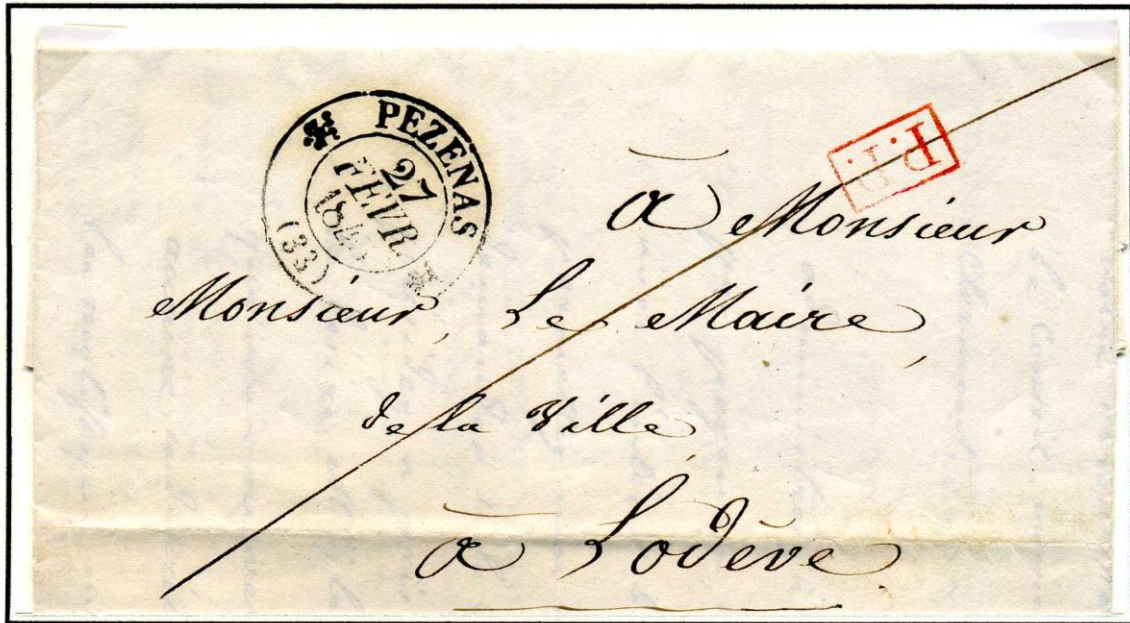 PEZENAS
27
FEVR.
(33)
P.P.
à Monsieur
Monsieur, Le Maire,
de la Ville,
à Lodève